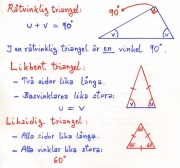 Rätvinklig triangel:
90°
u + v = 90°
v
u
I en rätvinklig triangel är en vinkel 90°.
Likbent triangel:
- Två sidor lika långa.
- Basvinklarna lika stora:
u = v
u
v
Liksidig triangel:
- Alla sidor lika långa.
- Alla vinklar lika stora:
60°